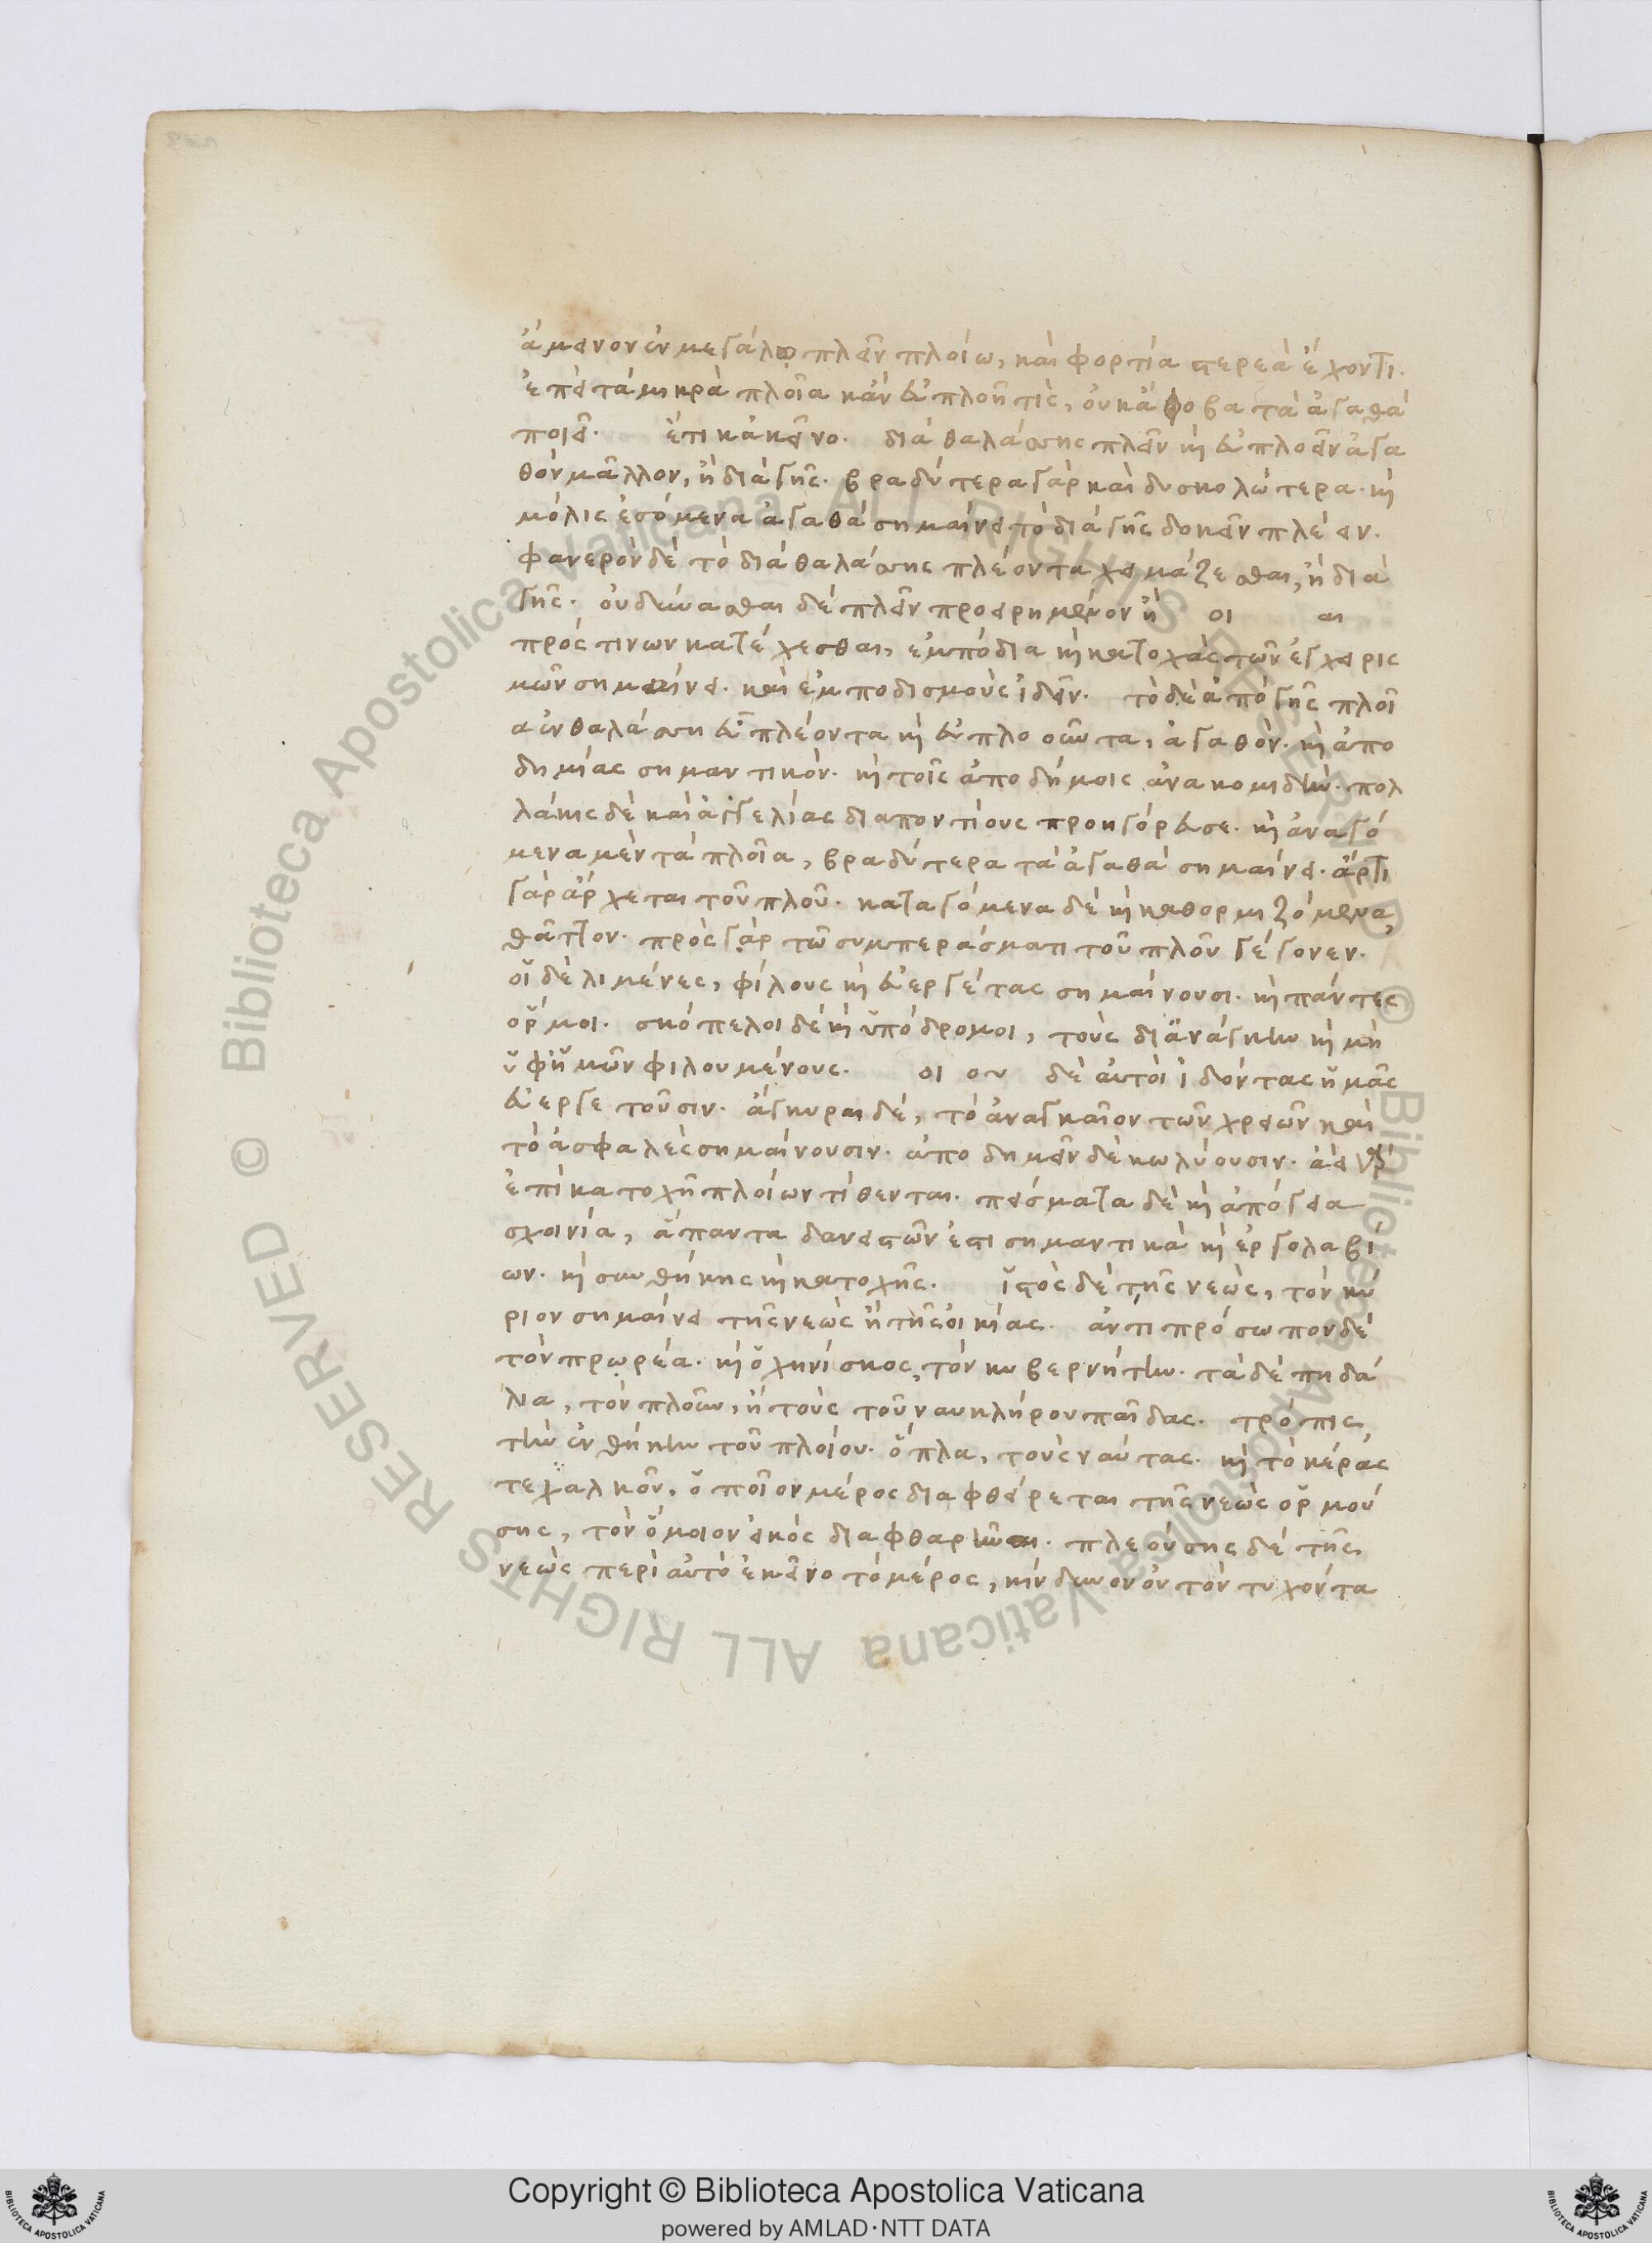 ἄμεινον ἐν μεγάλῳ πλεῖν πλοίω, καὶ φορτία στερεὰ ἔχοντι.
ἐπεὶ τά μικρὰ πλοῖα κἂν εὐπλοῆ τὶς, οὐκ ἄφοβα τὰ ἀγαθὰ
ποιεῖ. ἔτι κἀκεῖνο. διὰ θαλάσσης πλεῖν καὶ εὐπλοεῖν ἀγα
θὸν μᾶλλον, ἢ διὰ γῆς. βραδύτερα γὰρ καὶ δυσκολώτερα. καὶ
μόλις ἐσόμενα ἀγαθὰ σημαίνει τὸ διὰ γῆς δοκεῖν πλέειν.
φανερὸν δὲ τὸ διὰ θαλάσσης πλέοντα χειμάζεσθαι, ἢ διὰ
γῆς. οὐ δύνασθαι δὲ πλεῖν προειρημένον ἢ οι αι
πρός τινων κατέχεσθαι, ἐμπόδια καὶ κατοχὰς τῶν ἐγχειρισ
μῶν σημαίνει. καὶ ἐμποδισμοὺς ἰδεῖν. τὸ δὲ ἀπὸ γῆς πλοῖ
α ἐν θαλάσση εὖ πλέοντα καὶ εὐπλοοῦντα, ἀγαθόν. καὶ ἀπο
δημίας σημαντικόν. καὶ τοῖς ἀποδήμοις ἀνακομιδὴν. πολ
λάκις δὲ καὶ ἀγγελίας διαποντίους προηγόρευσε. καὶ ἀναγό
μενα μὲν τὰ πλοῖα, βραδύτερα τὰ ἀγαθὰ σημαίνει. ἄρτι
γὰρ ἄρχεται τοῦ πλοῦ. καταγόμενα δὲ καὶ καθορμιζόμενα,
θᾶττον. πρὸς γὰρ τῶ συμπεράσματι τοῦ πλοῦ γέγονεν.
οἱ δὲ λιμένες, φίλους καὶ εὐεργέτας σημαίνουσι. καὶ πάντες
ὅρμοι. σκόπελοι δὲ καὶ ὑπόδρομοι, τοὺς δι ἀνάγκην καὶ μὴ
ὑφ ἡμῶν φιλουμένους. οι ου δὲ αὐτοὶ ἰδόντας ἡμᾶς
εὐεργετοῦσιν. ἄγκυραι δὲ, τὸ ἀναγκαῖον τῶν χρειῶν καὶ
τὸ ἀσφαλὲς σημαίνουσιν. ἀποδημεῖν δὲ κωλύουσιν. ἀεὶ γὰρ
ἐπὶ κατοχῆ πλοίων τίθενται. πείσματα δὲ καὶ ἀπόγεια
σχοινία, ἅπαντα δανειστῶν ἐστι σημαντικὰ καὶ ἐργολαβι
ων. καὶ συνθήκης καὶ κατοχῆς. ἱστὸς δὲ τῆς νεὼς, τὸν κύ
ριον σημαίνει τῆς νεὼς ἢ τῆς οἰκίας. ἀντιπρόσωπον δὲ
τὸν πρωρέα. καὶ ὁ χηνίσκος, τὸν κυβερνήτην. τὰ δὲ πηδά
λια, τὸν πλοῦν, ἢ τοὺς τοῦ ναυκλήρου παῖδας. τρόπις
τὴν ἐνθήκην τοῦ πλοίου. ὅπλα, τοὺς ναύτας. καὶ τὸ κέρας
τε χαλκοῦν, ὁποῖον μέρος διαφθείρεται τῆς νεὼς ὁρμού
σης, τὸν ὅμοιον εἰκὸς διαφθαρῆναι. πλεούσης δὲ τῆς
νεὼς περὶ αὐτὸ ἐκεῖνο τὸ μέρος, κίνδυνον οὐ τὸν τυχόντα
Copyright © Biblioteca Apostolica Vaticana
powered by AMLAD·NTT DATA